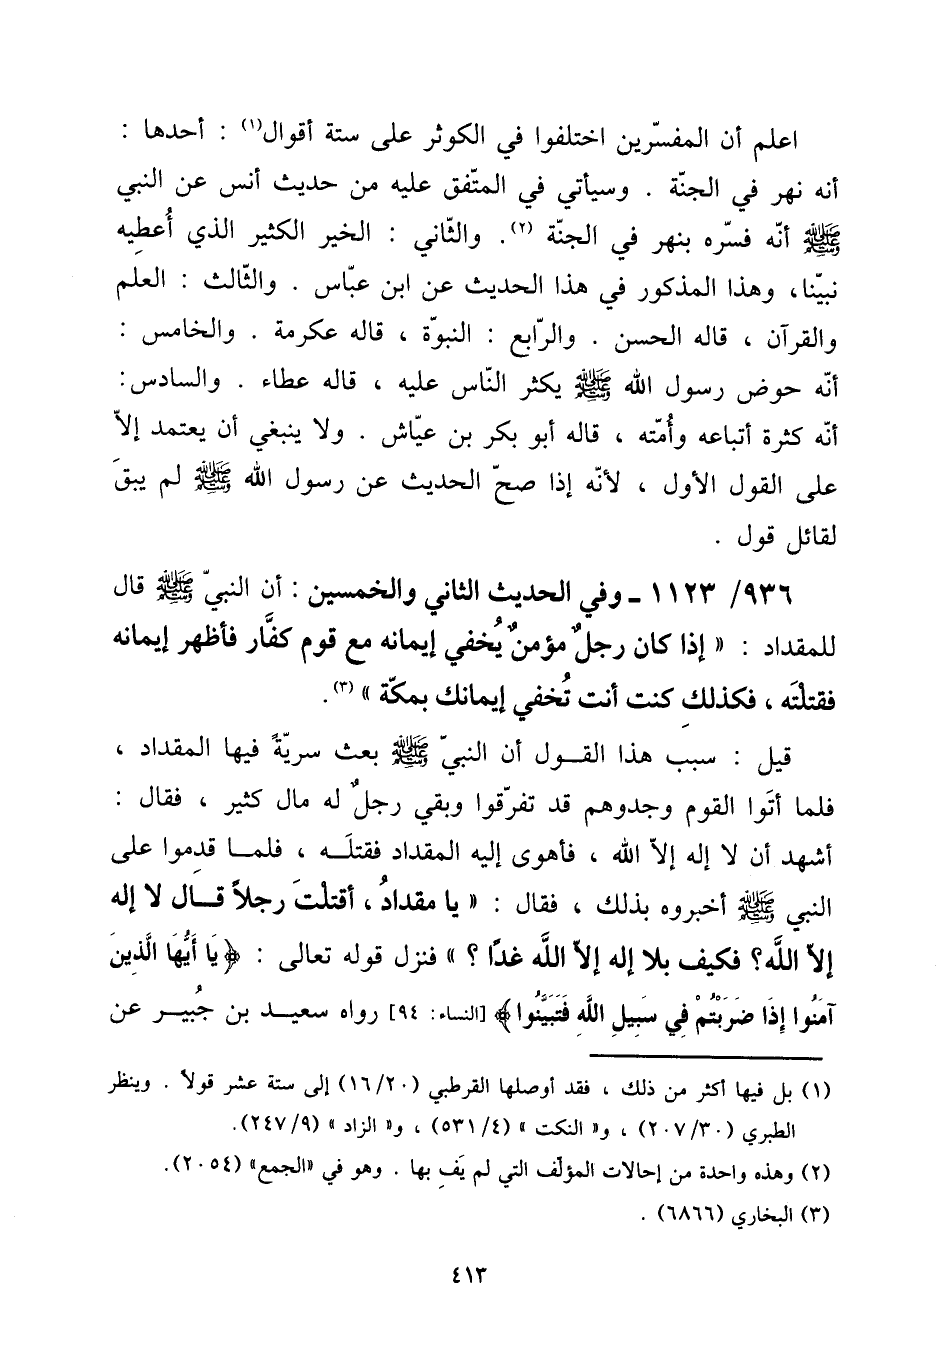 اعلم أن المفسّرين اختلفوا في الكوثر على ستة أقوال(١) : أحدها :
أنه نهر في الجنّة . وسيأتي في المتّفق عليه من حديث أنس عن النبي
ﷺ أنّه فسّره بنهر في الجنّة (٢). والثّاني : الخير الكثير الذي أُعطِيه
نبيّنا، وهذا المذكور في هذا الحديث عن ابن عبّاس . والثّالث : العلم
والقرآن ، قاله الحسن . والرّابع : النبوّة ، قاله عكرمة . والخامس :
أنّه حوض رسول الله ﷺ يكثر النّاس عليه ، قاله عطاء . والسادس:
أنّه كثرة أتباعه وأُمّته ، قاله أبو بكر بن عيّاش . ولا ينبغي أن يعتمد إلاّ
على القول الأول ، لأنّه إذا صحّ الحديث عن رسول الله ﷺ لم يبقَ
لقائل قول .
٩٣٦/ ١١٢٣ ـ وفي الحديث الثاني والخمسين : أن النبيّ ﷺ قال
للمقداد : « إذا كان رجلٌ مؤمنٌ يُخفي إيمانه مع قوم كفَّار فأظهر إيمانه
فقتلْتَه ، فكذلكِ كنت أنت تُخفي إيمانك بمكّة » (٣).
قيل : سبب هذا القـول أن النبيّ ﷺ بعث سريّةً فيها المقداد ،
فلما أتَوا القوم وجدوهم قد تفرّقوا وبقي رجلٌ له مال كثير ، فقال :
أشهد أن لا إله إلاّ الله ، فأهوى إليه المقداد فقتلَـه ، فلمـا قدِموا على
النبي ﷺ أخبروه بذلك ، فقال : « يا مقدادُ ، أقتلْتَ رجلاً قـال لا إله
إلاّ اللَّه؟ فكيف بلا إله إلاّ اللَّه غدًا ؟ » فنزل قوله تعالى : ﴿يَا أَيُّهَا الَّذِينَ
آمَنُوا إِذَا ضَرَبْتُمْ فِي سَبِيلِ اللَّهِ فَتَبَيَّنُوا﴾ [النساء: ٩٤] رواه سعيـد بن جُبيـر عن
(١) بل فيها أكثر من ذلك ، فقد أوصلها القرطبي (١٦/٢٠) إلى ستة عشر قولاً . وينظر
الطبري (٢٠٧/٣٠) ، و« النكت » (٥٣١/٤) ، و« الزاد » (٢٤٧/٩).
(٢) وهذه واحدة من إحالات المؤلّف التي لم يَفِ بها . وهو في «الجمع» (٢٠٥٤).
(٣) البخاري (٦٨٦٦) .
٤١٣